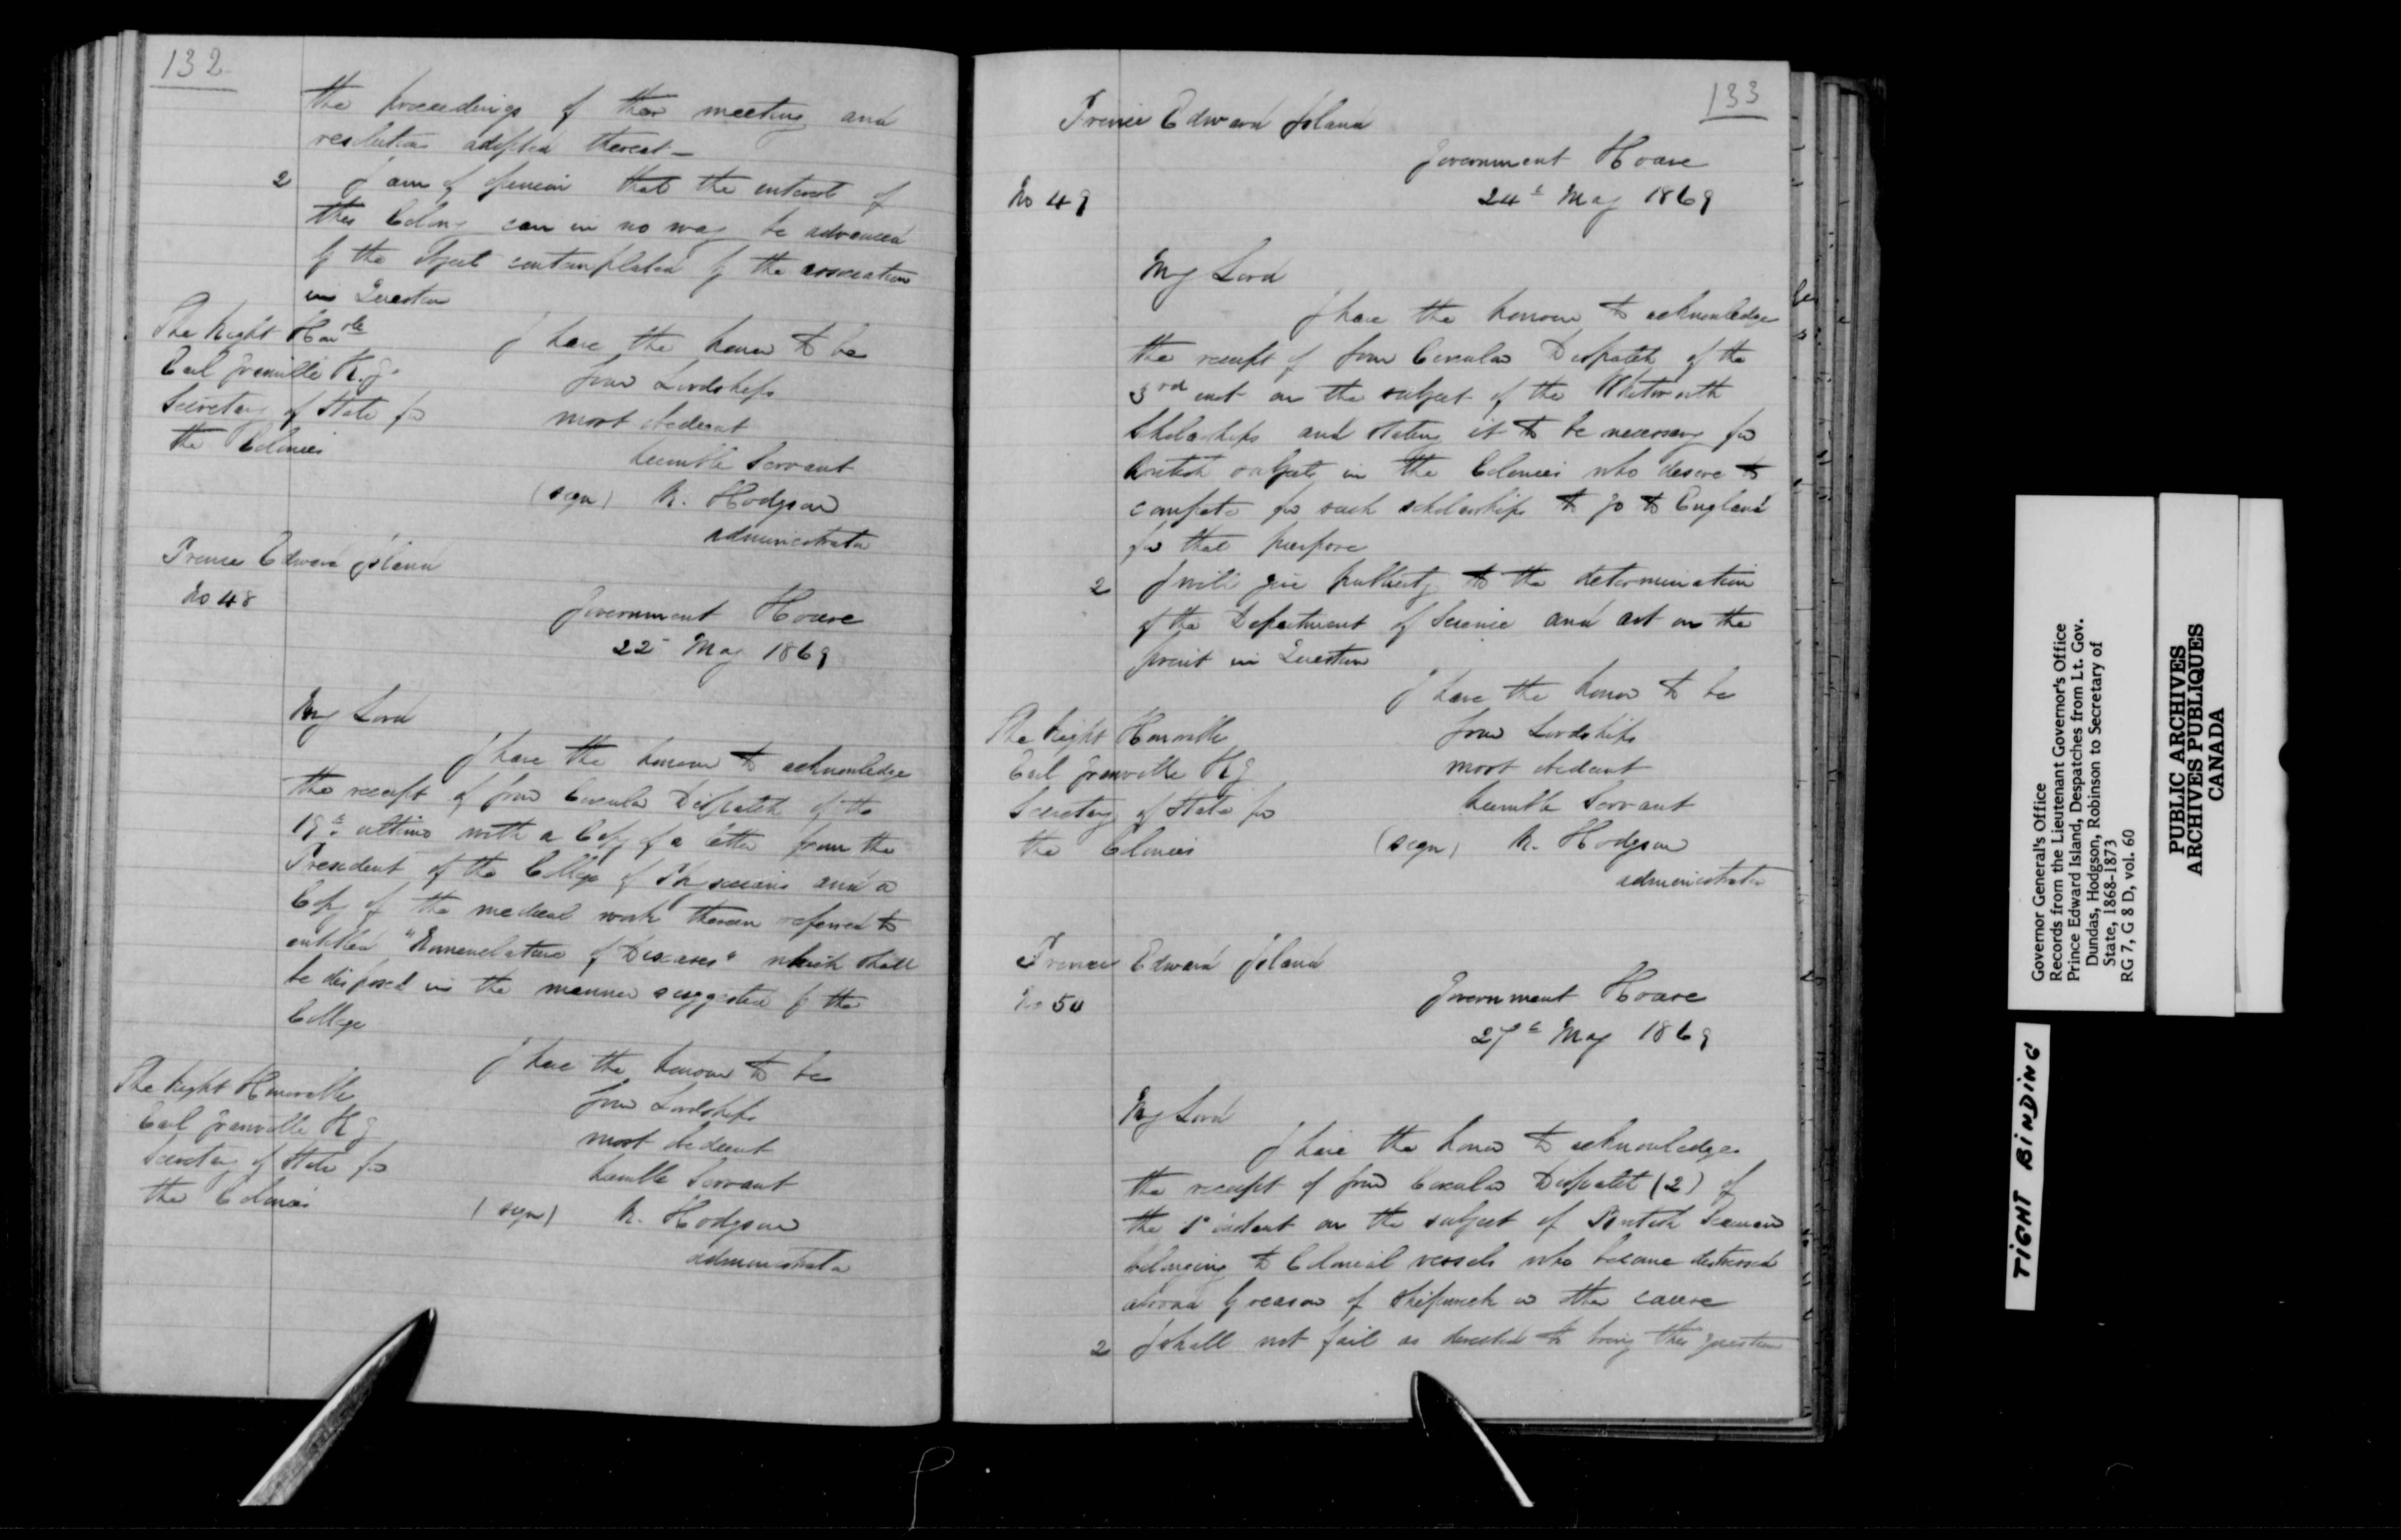 132
the proceedings of their meeting and
resolutions adopted thereat —
2 I am of opinion that the interests of
this Colony can in no way be advanced
by the Object contemplated by the association
in Question
I have the honor to be
Your Lordships
most obedient
humble Servant
(sign) R. Hodgson
administrator
The Right Honble
Earl Granville K.G.
Secretary of State for
the Colonies
Prince Edward Island
No 48
Government House
22d May 1869
My Lord
I have the honour to acknowledge
the receipt of your Circular Dispatch of the
19th ultimo with a Copy of a letter from the
President of the College of Physicians and a
Copy of the medical work therein referred to
entitled "Nomenclature of Diseases" which shall
be disposed in the manner suggested by the
College
I have the honour to be
Your Lordships
most obedient
humble Servant
(sign) R. Hodgson
administrator
The Right Honorable
Earl Granville K G
Secretary of State for
the Colonies
133
Prince Edward Island
Government House
No 49
24th May 1869
My Lord
I have the honour to acknowledge
the receipt of your Circular Dispatch of the
3rd inst on the subject of the Whitworth
Scholarships and stating it to be necessary for
British subjects in the Colonies who desire to
compete for such scholarships to go to England
for that purpose
2 I will give publicity to the determination
of the Department of Science and art on the
point in Question
I have the honor to be
Your Lordships
most obedient
humble Servant
(sign) R. Hodgson
administrator
The Right Honorable
Earl Granville K G
Secretary of State for
the Colonies
Prince Edward Island
No 50
Government House
27th May 1869
My Lord
I have the honor to acknowledge
the receipt of your Circular Dispatch (2) of
the 1st on the subject of British Seamen
belonging to Colonial vessels who become distressed
abroad by reason of Shipwreck or other cause
2 I shall not fail as directed to bring this question
Governor General's Office
Records from the Lieutenant Governor's Office
Prince Edward Island, Despatches from Lt. Gov.
Dundas, Hodgson, Robinson to Secretary of
State, 1868-1873
RG 7, G 8 D, vol. 60
PUBLIC ARCHIVES
ARCHIVES PUBLIQUES
CANADA
TIGHT BINDING